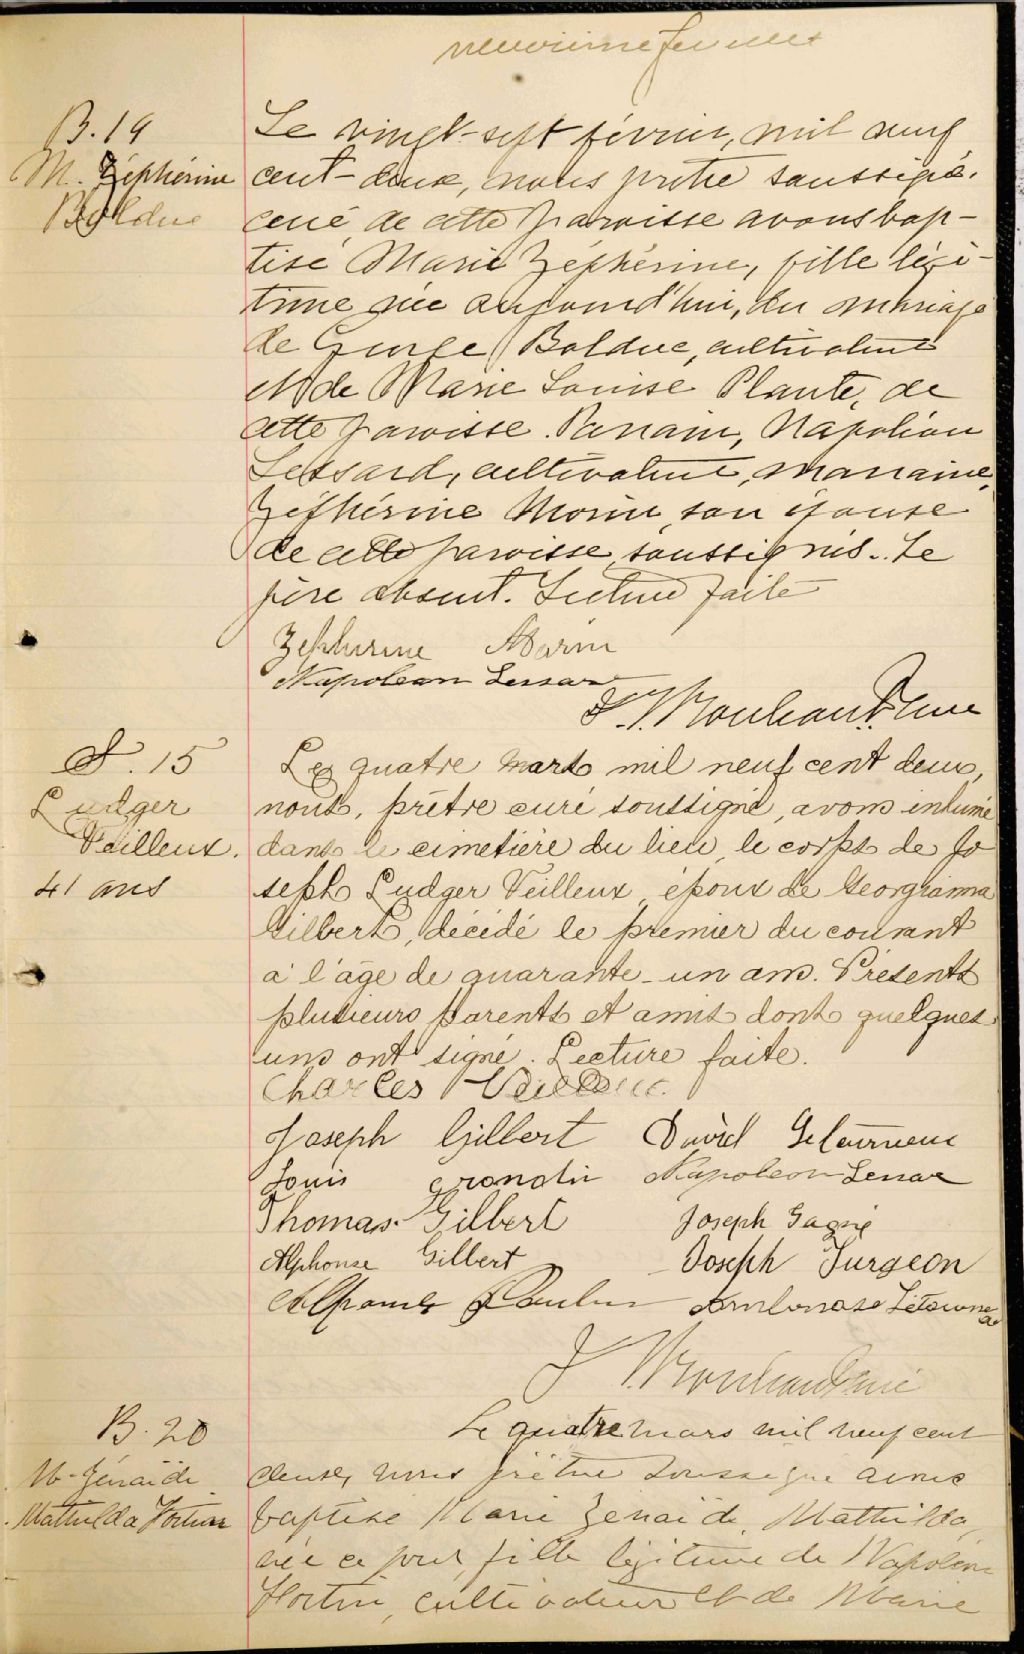 neuvième feuillet
B. 19
M. Zéphérine
Bolduc
Le vingt-sept février, mil neuf
cent-deux, nous prêtre soussigné,
curé de cette paroisse avons bap-
tisé Marie Zéphérine, fille légi-
time née aujourd'hui, du mariage
de George Bolduc, cultivateur
et de Marie Louise Plante, de
cette paroisse. Parrain, Napoléon
Lessard, cultivateur, marraine,
Zéphérine Morin, son épouse
de cette paroisse, soussignés. Le
père absent. Lecture faite
Zephurine Morin
Napoleon Lessar
Curé
S. 15
Ludger
Veilleux.
41 ans
Le quatre mars mil neuf cent deux,
nous, prêtre curé soussigné, avons inhumé
dans le cimetière du lieu, le corps de Jo
seph Ludger Veilleux, époux de Georgianna
Gilbert, décédé le premier du courant
à l'âge de quarante-un ans. Présents
plusieurs parents et amis dont quelques
uns ont signé. Lecture faite.
Charles Veilleux
Joseph Gilbert David Letourneau
Louis grondin Napoleon Lessar
Thomas Gilbert Joseph Gagné
Alphonse Gilbert Joseph Turgeon
Poulin
curé
B. 20
M-Zénaïde
Mathilda Fortin
Le quatre mars mil neuf cent
deux, nous prêtre soussigné avons
baptisé Marie Zénaïde, Mathilda,
née ce jour, fille légitime de Napoléon
Fortin, cultivateur et de Marie